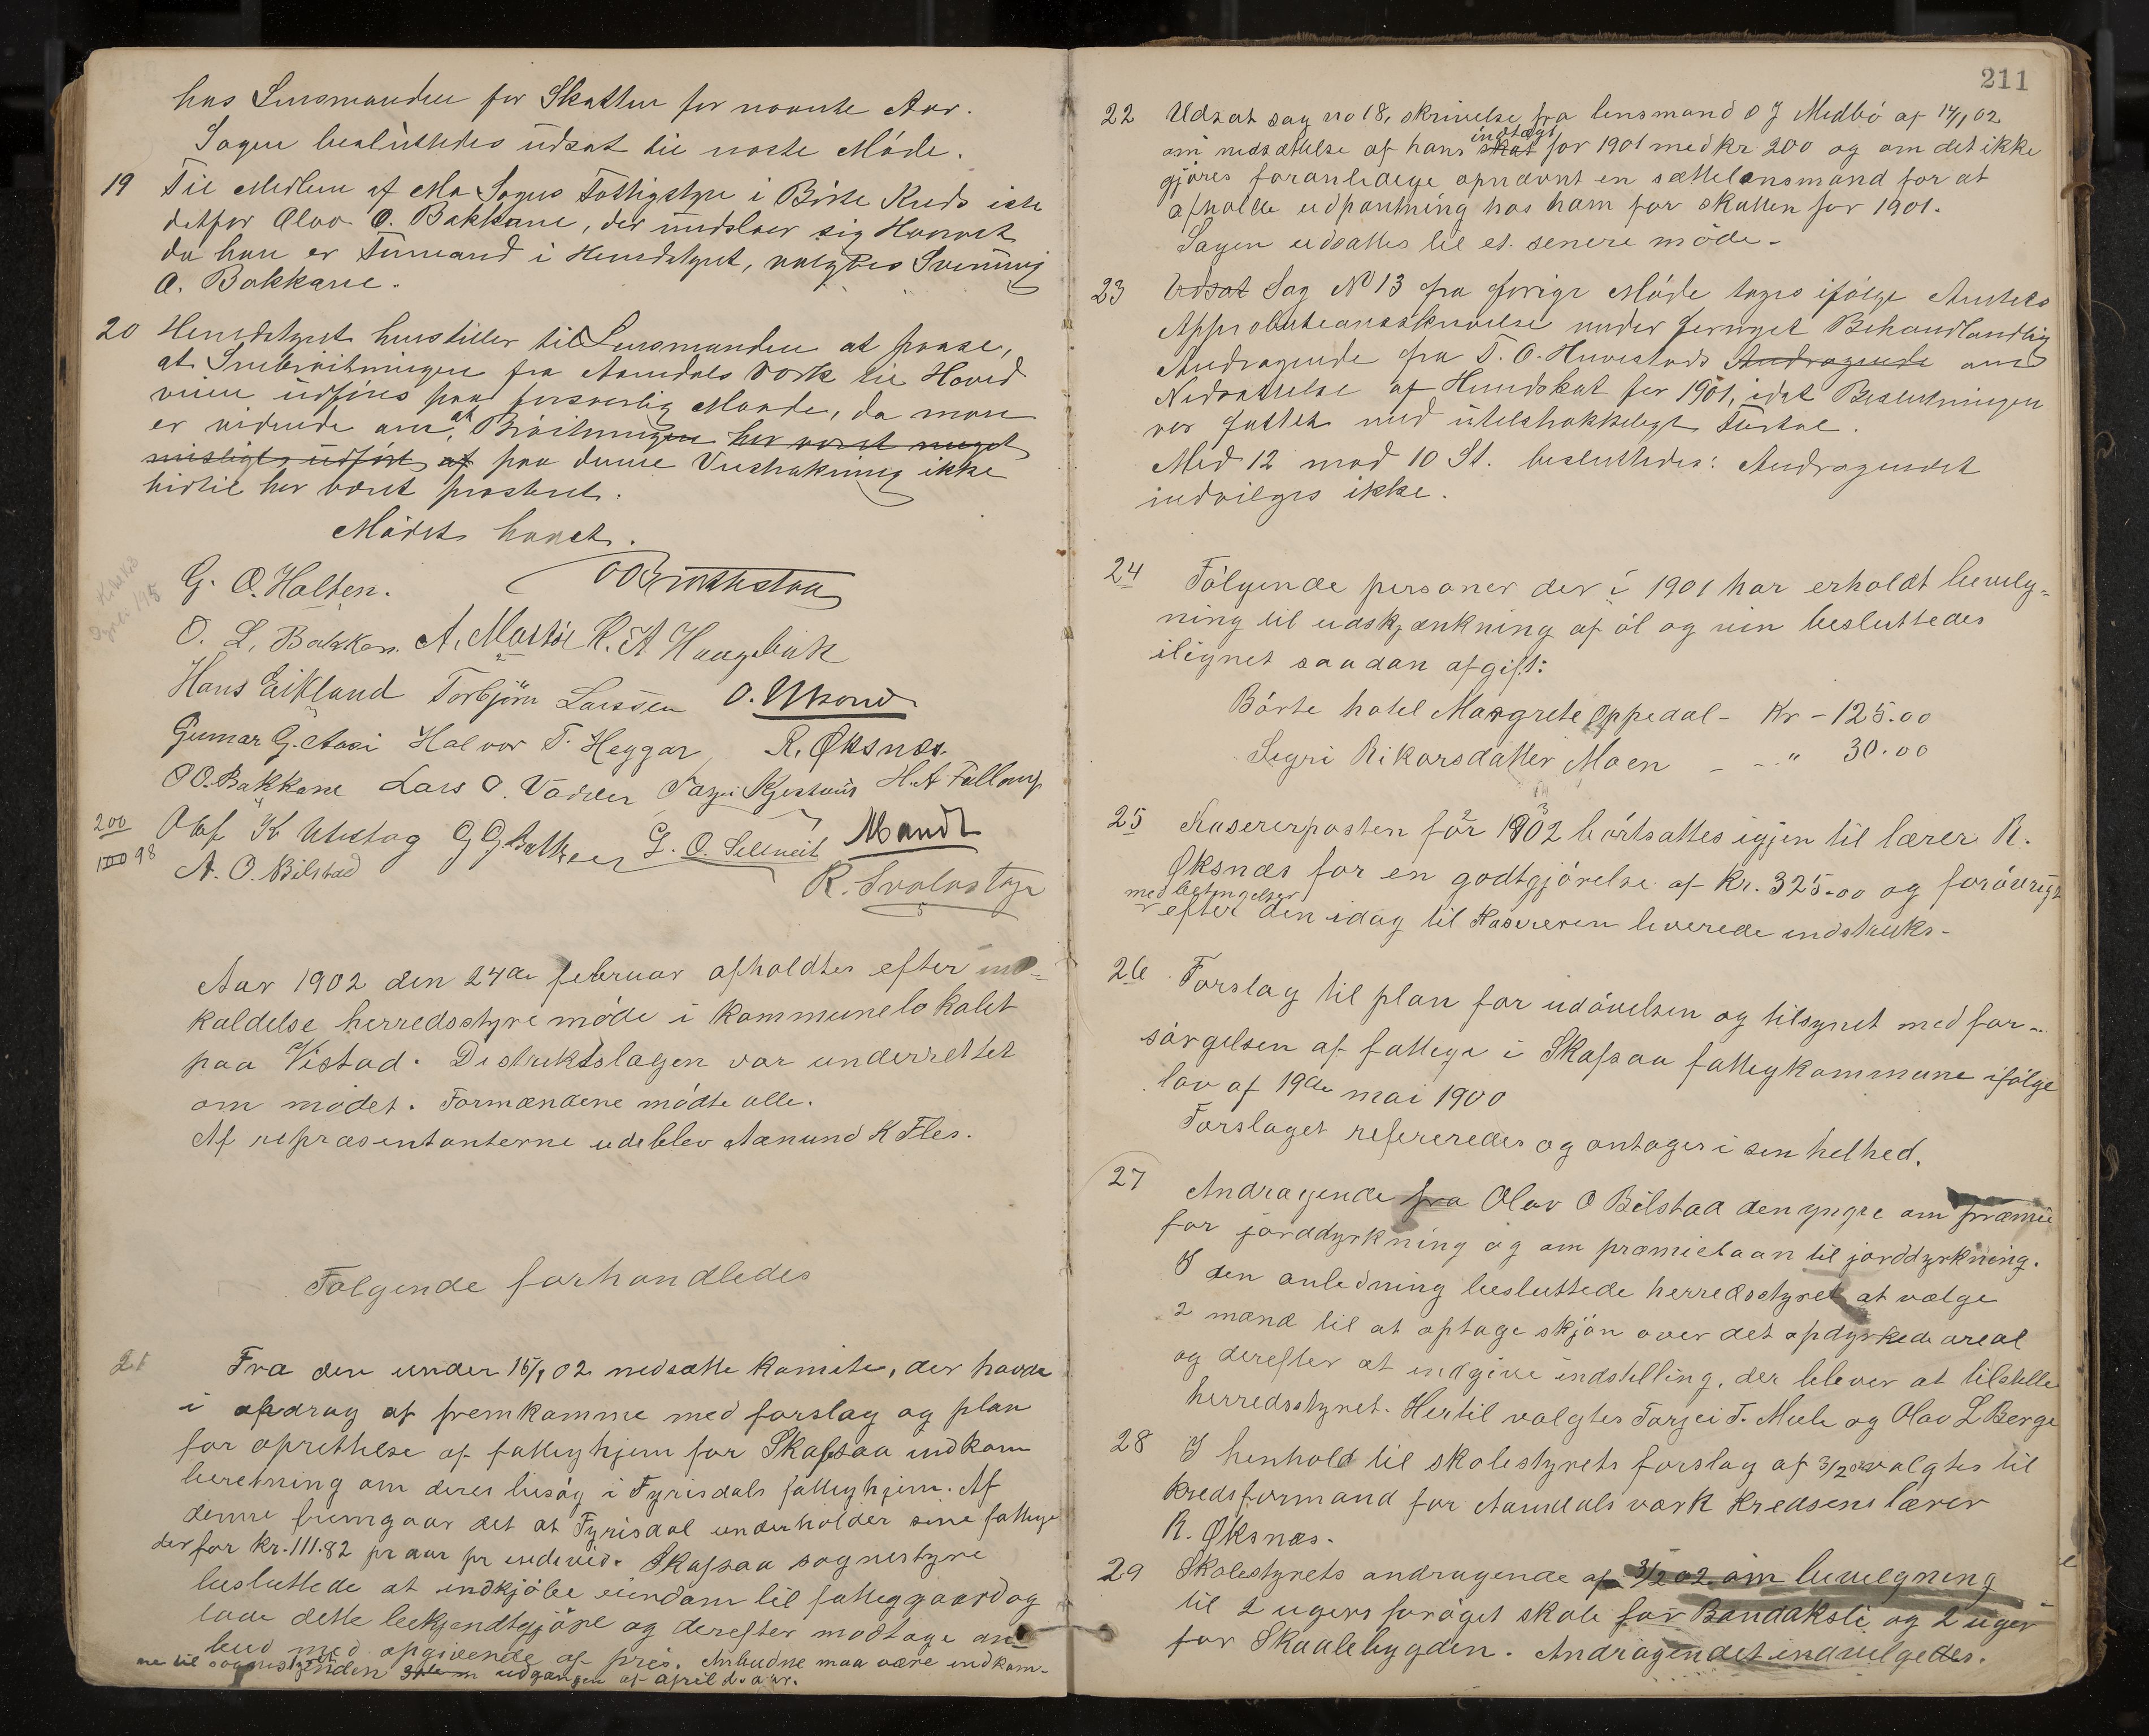 hos Lensmanden for Skatten for nævnte Aar.
Sagen besluttedes udsat til næste Møde.
19 Til Medlem af Mo Sogns Fattigstyre i Börte Kreds iste
detfor Olav O. Bakkane, der undslaar sig Hvervet
da han er Formand i Herredstyret, valgtes Svenning
O. Bakkane.
20 Herredstyret henstiller til Lensmanden at paase,
at Snebröitningen fra Aamdals Værk til Hoved
veien udföres paa forsvarlig Maade, da man
er vidende om, at Bröitningen har været meget
misligt udfört af paa denne Veistrækning ikke
hidtil har været præsteret.
Mödet hævet.
G. O. Holten.
O. L. Bakken. A. Mostöe K. A Haugebirk
Hans Eikland Torbjörn Larssen O.
Gunmar G. Aasi Halvor T. Heggar R. Øksnæs.
O O. Bakkane Lars O. Vadder H. A
Olaf K Utistog G G Bakken G. O. Seltveit Mandt
200
100 98
A. O. Bilstad
R. Svalastoga
Aar 1902 den 24de februar afholdtes efter ind-
kaldelse herredsstyremöde i kommunelokalet
paa Vistad. Distriktslægen var underrettet
om mödet. Formændene mödte alle.
Af repræsentanterne udeblev Aanund K Fles.
Folgende forhandledes
21 Fra den under 15/1 02 nedsatte komite, der havde
i opdrag at fremkomme med forslag og plan
for oprettelse af fattighjem for Skafsaa indkom
beretning om deres besög i Fyrisdals fattighjem. Af
denne fremgaar det at Fyrisdal underholder sine fattige
der for kr. 111.82 pr aar pr individ. Skafsaa sognestyre
besluttede at indkjöbe eiendom til fattiggaard og
lade dette bekjendtgjöre og derefter modtage an-
bud med opgivende af pris. Anbudne maa være indkom-
ne til sognestyret inden udgangen af april d. aar.
211
22 Udsat sag no 18, skrivelse fra lensmand O J Medbö af 14/1 02
indtægt
om nedsættelse af hans skat for 1901 med kr 200 og om det ikke
gjöres foranledige opnævnt en sættelensmand for at
afholde udpantning hos ham for skatten for 1901.
Sagen udsattes til et senere möde.
23 Udsat Sag No 13 fra forrige Möde tages ifölge Amtets
Approbationsskrivelse under fornyet Behandlandlig
Andragende fra T. O. Huvestads Andragende om
Nedsættelse af Hundskat for 1901, idet Beslutningen
var fattet med utilstrækkeligt Fortal.
Med 12 mod 10 St. besluttedes: Andragendet
indvilges ikke.
24 Fölgende personer der i 1901 har erholdt bevilg-
ning til udskjænkning af öl og vin besluttedes
ilignet saadan afgift:
Börte hotel Margrete Oppedal - Kr - 125.00
Sigri Rikarsdatter Moen - - " 30.00
25 Kasererposten for 1902 bortsattes igjen til lærer R.
Øksnæs for en godtgjörelse af kr. 325.00 og foröverigt
med betingelser
efter den idag til Kasereren leverede indstruks.
26 Forslag til plan for udövelsen og tilsynet med for-
sörgelsen af fattige i Skafsaa fattigkommune ifölge
lov af 19de mai 1900
Forslaget refereredes og antages i sin helhed.
27 Andragende fra Olav O Bilstad den yngre om præmie
for jorddyrkning og om præmielaan til jorddyrkning.
I den anledning besluttede herredsstyret at vælge
2 mænd til at optage skjön over det opdyrkede areal
og derefter at indgive indstilling, der bliver at tilstille
herredsstyret. Hertil valgtes Torjei T. Mule og Olav L Berge
28 I henhold til skolestyrets forslag af 3/2 02 valgtes til
kredsformand for Aamdals værk kredsens lærer
R. Øksnæs.
29 Skolestyrets andragende af 3/2 02 om bevilgning
til 2 ugers foröget skole for Bandaksli og 2 uger
for Skaalebygden. Andragendet indvilgedes.